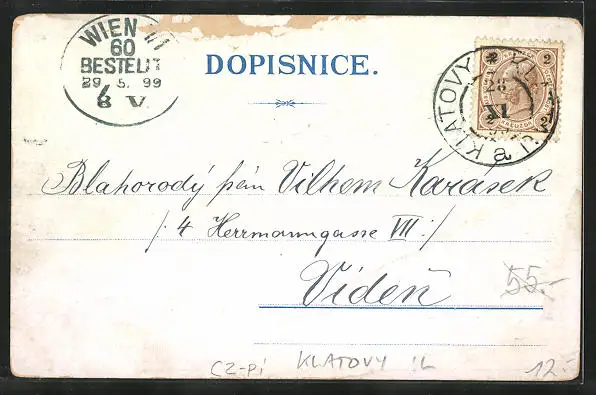 WIEN
60
BESTELLT
29. 5. 99
8 V.
DOPISNICE.
KLATOVY
a
2
2
KREUZER
Blahorodý pán Vilhem Karásek
/: 4 Herrmanngasse VII :/
Vídeň
55.-
CZ-Pi KLATOVY
12.-